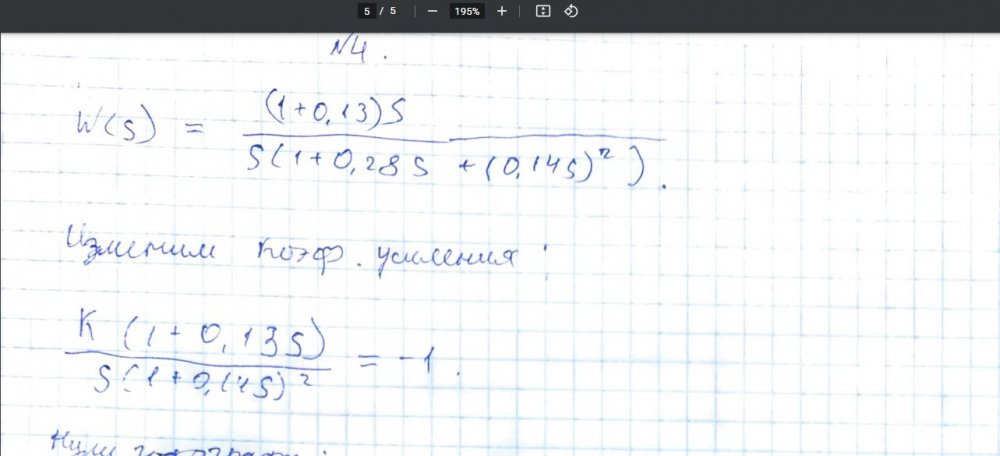 5 / 5 195%
N4.
W(s) = (1+0,13)S
S(1+0,28S +(0,14S)²).
Изменим коэф. усиления:
K (1+0,13S) = -1.
S(1+0,14S)²
Нули